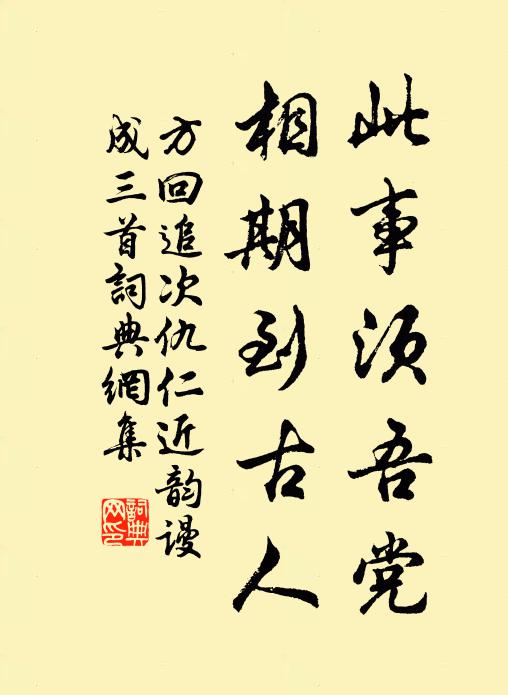 此事须吾党
相期到古人
方回追次仇仁近韵谩
成三首詞典網集
詞典
网印